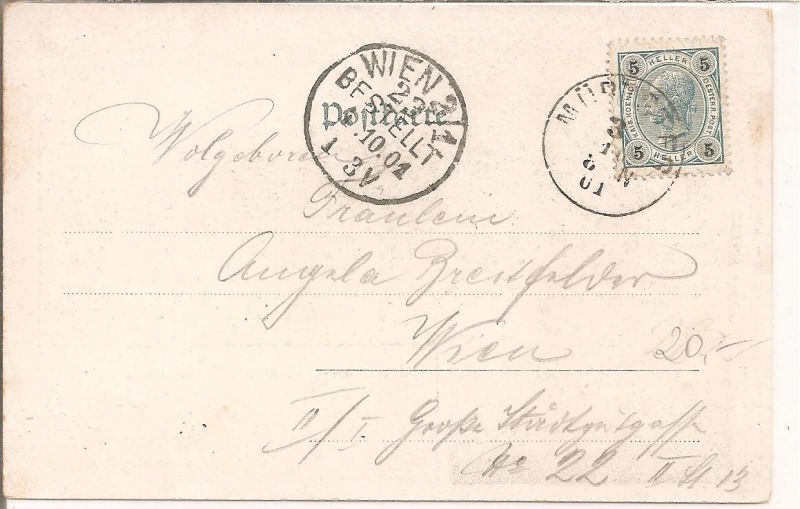 5 HELLER 5
5 HELLER 5
WIEN 2/1
BESTELLT
Postkarte
.10.01
1 3V
MÜR
01
Wolgeboren
Fräulein
Angela Breitfelder
Wien
20.-
II/I Große Stadtgutgasse
No 22 II St 13